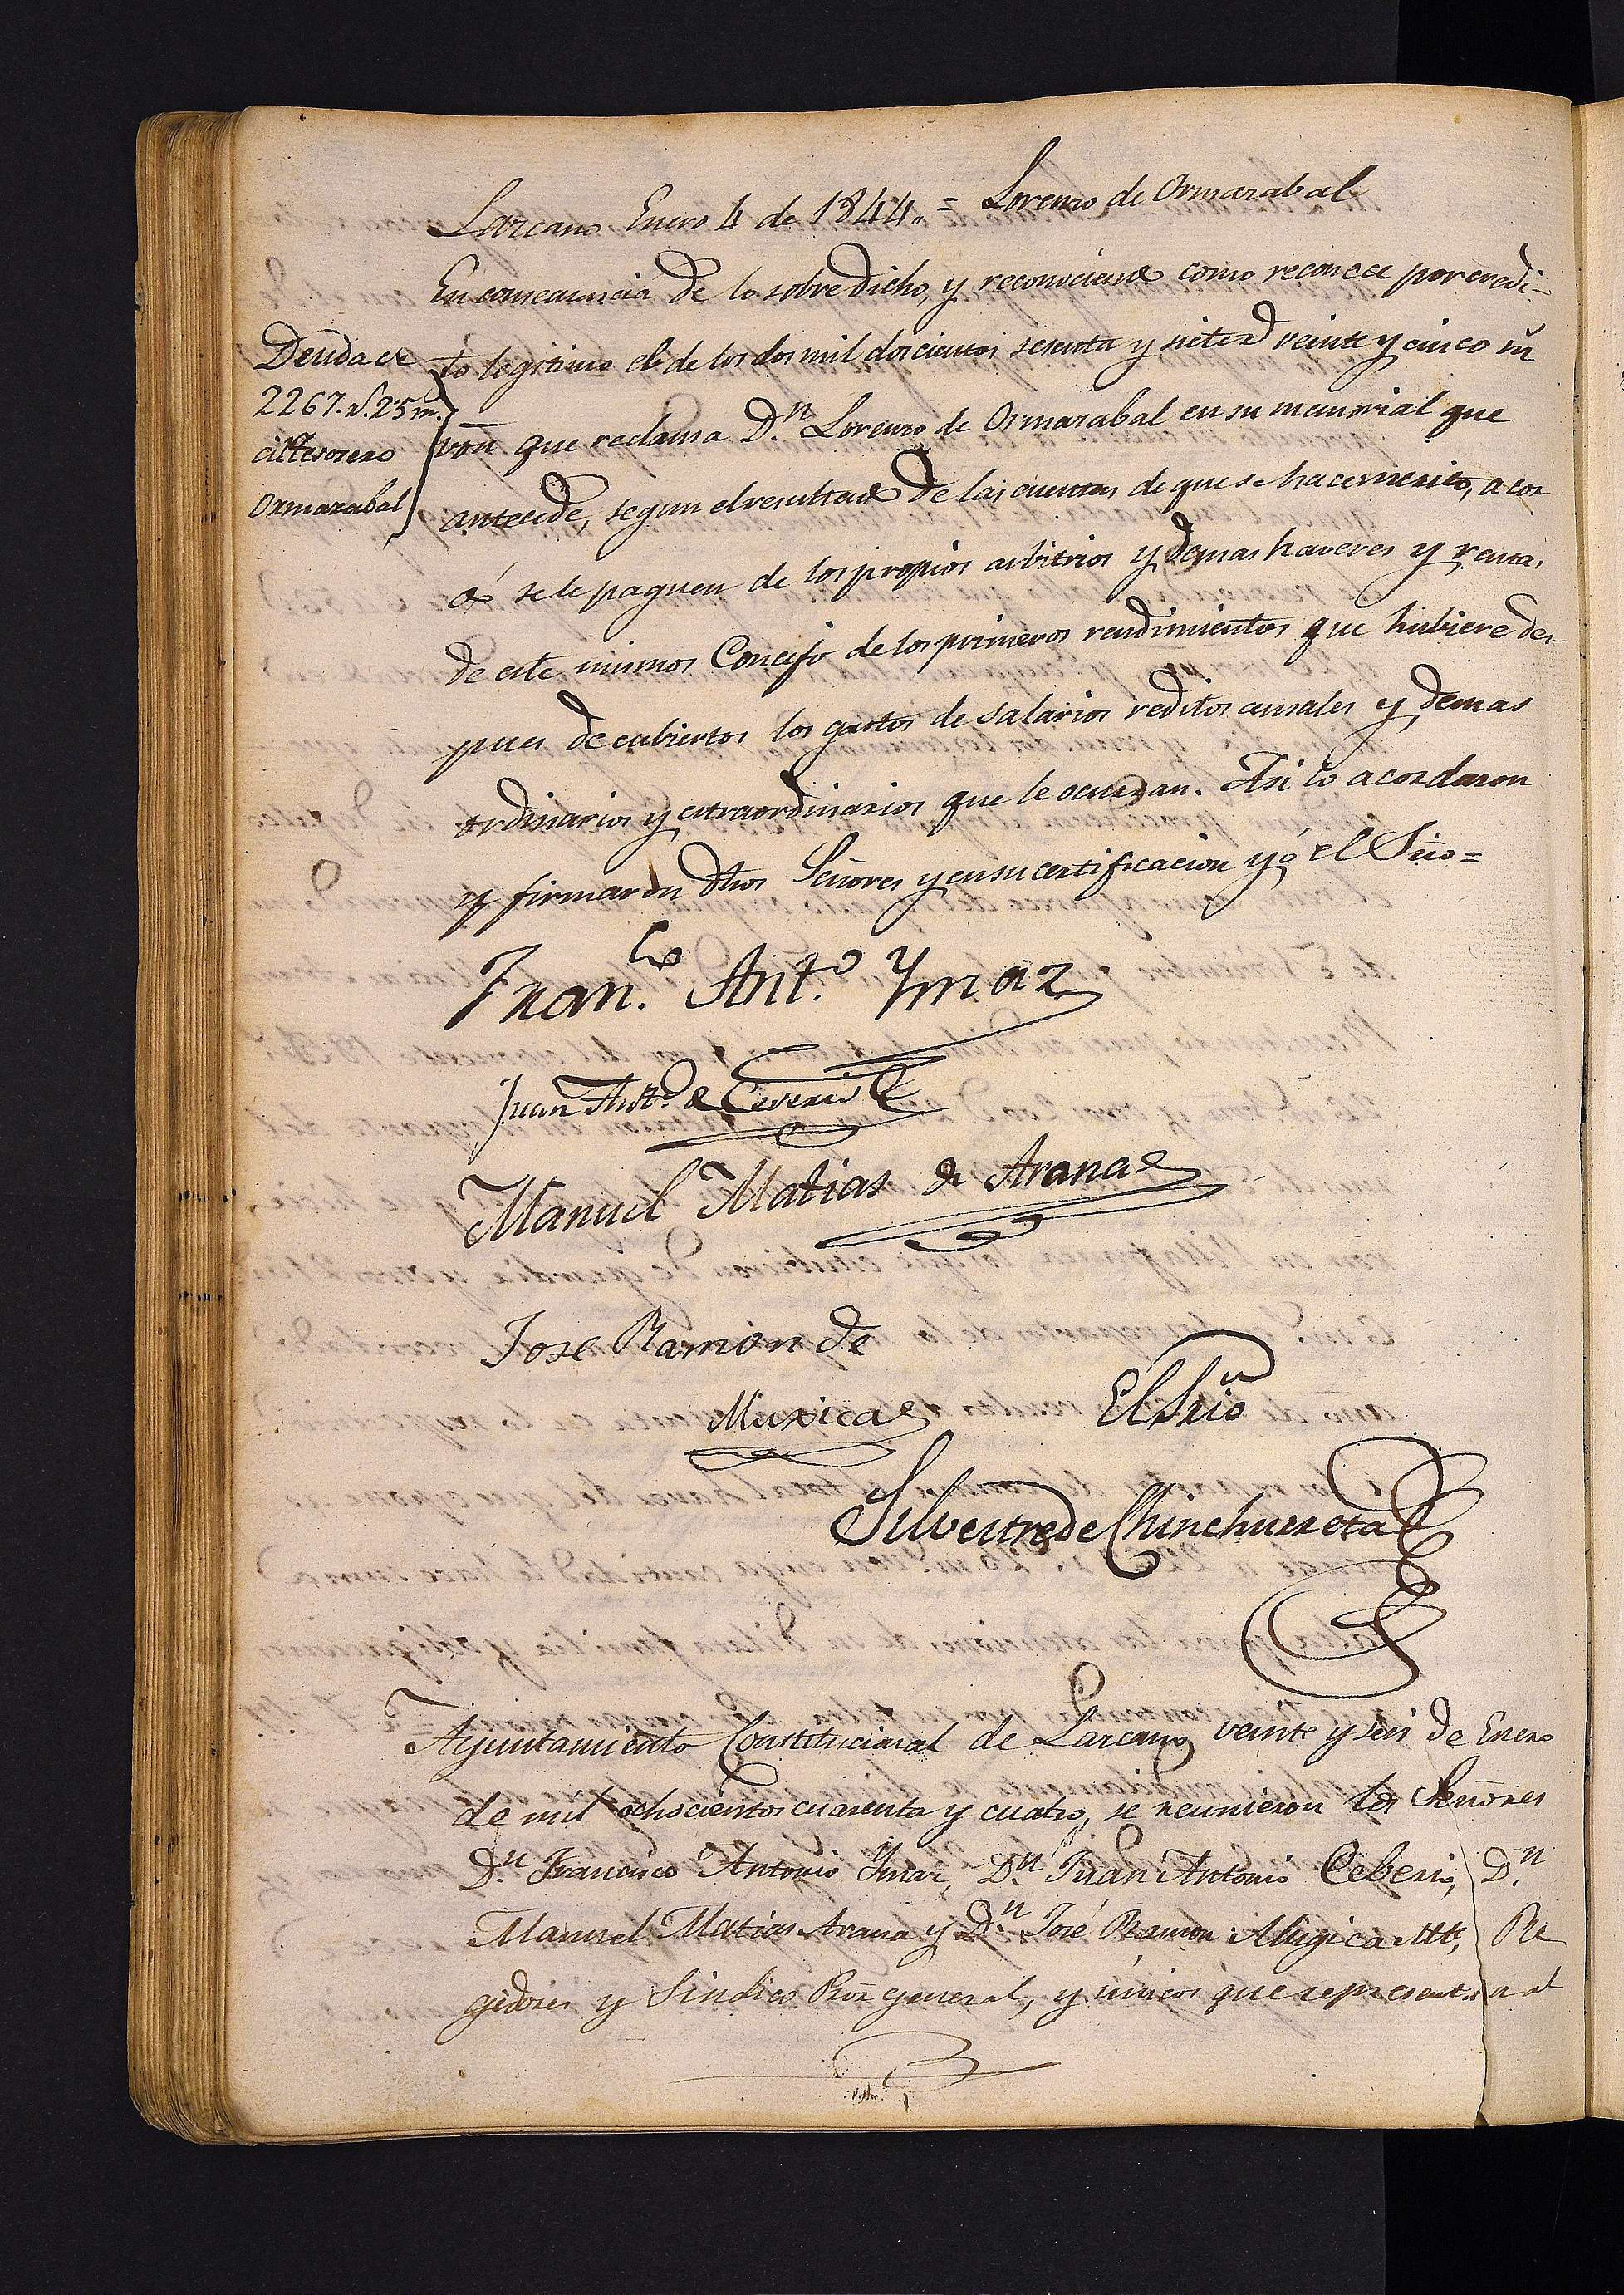 Lazcano Enero 4 de 1844. = Lorenzo de Ormazabal
En consecuencia de lo sobredicho, y reconociendo como reconoce por credi-
to legitimo el de los dos mil doscientos sesenta y siete r.s veinte y cinco m.s
von que reclama D.n Lorenzo de Ormazabal en su memorial que
antecede, segun el resultado de las cuentas de que se hace merito, acor
dó se le paguen de los propios arbitrios y demas haveres y rentas
de este mismos Concejo de los primeros rendimientos que hubiere des-
pues de cubiertos los gastos de salarios reditos censales y demas
ordinarios y extraordinarios que le ocurran. Asi lo acordaron
y firmaron dhos Señores y en su certificacion yó el Srio =
Deuda de
2267. r.s 25 m.
al Tesorero
Ormazabal
Fran.co Ant.o Ymaz
Juan Ant.o de Ceverio
Manuel Matias de Arana
Jose Ramon de
Muxica
El Srio
Silvestre de Chinchurreta
Ayuntamiento Constitucional de Lazcano veinte y seis de Enero
de mil ochocientos cuarenta y cuatro, se reunieron los Señores
D.n Francisco Antonio Ymaz, D.n Juan Antonio Ceberio, D.n
Manuel Matias Arana y D.n José Ramon Mugica Altt, Re
gidores y Sindico Pror general, y únicos que representan al